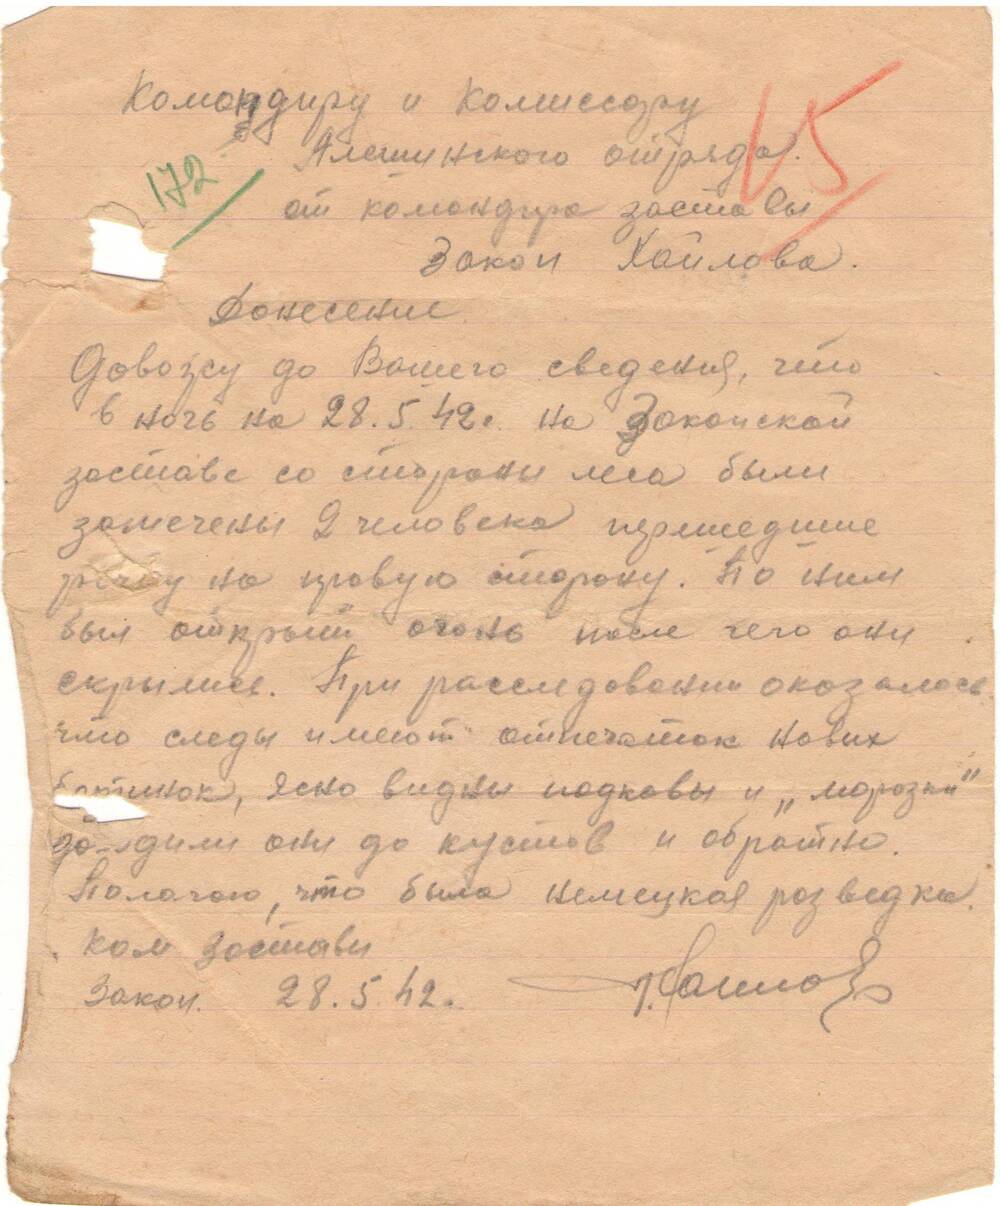 Командиру и Комиссару
Алешинского отряда.
172
15
от командира заставы
Закой Хайлова.
Донесение
Довожу до Вашего сведения, что
в ночь на 28.5.42. на Закойской
заставе со стороны леса были
замечены 2 человека перешедшие
речку на правую сторону. По ним
был открыт огонь после чего они
скрылись. При расследовании оказалось
что следы имеют отпечаток новых
ботинок, ясно видны подковы и „морозки"
доходили они до кустов и обратно.
Полагаю, что была немецкая разведка.
Ком заставы
Закои. 28.5.42.